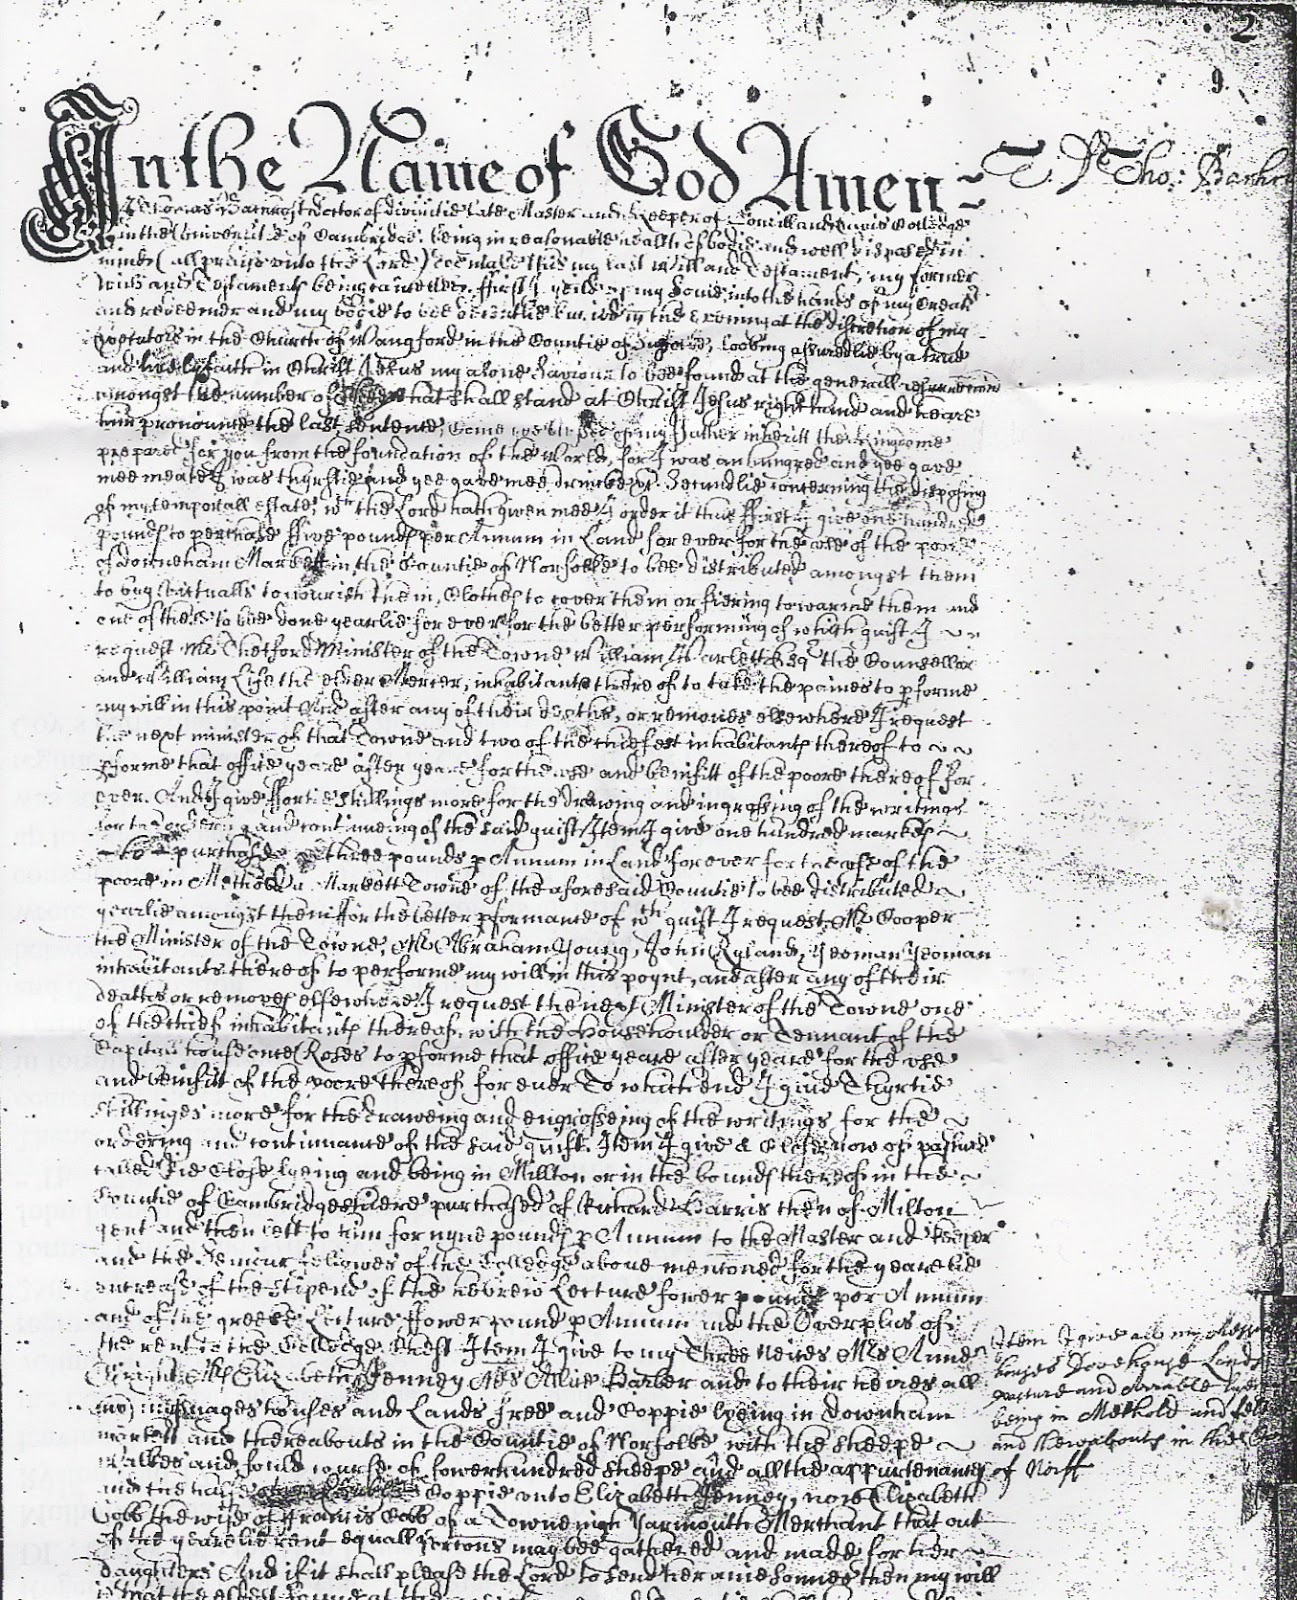 2
9
In the Name of God Amen
T. Dr Tho: Barker
doctor of divinitie late Master and Keeper of Colledge
in the Universitie of Cambridge, being in reasonable health of bodie and well disposed in
minde (all praise unto the Lord) doe make this my last Will and Testament, my former
Wills and Testaments being First I yeild up my Soule into the hands of my Creator
and redeemer and my bodie to bee at the discretion of my
Executors in the Church of Wangford in the Countie of looking assuredlie by a true
and livelie faith in Christ Jesus my alone Saviour to bee found at the generall resurrection
amongst the number of that shall stand at Christ Jesus right hand and heare
him pronounce the last sentence, Come yee blessed of my Father inheritt the Kingdome
prepared for you from the foundation of the World, for I was an hungred and yee gave
mee meate I was thyrstie and yee gave mee drincke &c. Secundlie concerning the disposing
of my temporall estate, wch the Lord hath given mee I order it thus First I give one hundred
pounds to purchase Five pounds per Annum in Land for ever for the use of the poore
of Downeham Markett in the Countie of Norfolke to bee distributed amongst them
to buy Victualls to nourish them, Clothes to cover them or fiering to warme them and
one of these to bee done yearlie for ever for the better performing of which guift I
request Mr Thetford Minister of the Towne William Esqr the Counsellor
and William Life the elder Mercer, inhabitants thereof to take the paines to pforme
my will in this point And after any of their deaths, or removes elsewhere I request
the next minister of that Towne and two of the chiefest inhabitants thereof to
pforme that office yeare after yeare for the use and benifitt of the poore thereof for
ever. And I give Fortie shillings more for the drawing and ingrossing of the writings
for the ordering and continuing of the said guift Item I give one hundred markes
to purchase three pounds p Annum in Land for ever for the use of the
poore in Methold a Markett Towne of the aforesaid Countie to bee distributed
yearlie amongst them For the better pformance of wch guift I request Mr Cooper
the Minister of the Towne, Mr Abraham Young, John Ryland, Yeoman Yeoman
inhabitants thereof to performe my will in this poynt, and after any of their
deaths or removes elsewhere I request the next Minister of the Towne one
of the chief inhabitants thereof, with the Househoulder or Tennant of the
Capitall house once Roses to pforme that office yeare after yeare for the use
and benifitt of the poore thereof for ever To which end I give Thyrtie
shillinges more for the draweing and engrosseing of the writings for the
ordering and continuance of the said guift. Item I give a Close now of pasture
called Pie Close lyeing and being in Millton or in the bounds thereof in the
Countie of Cambridgeshiere purchased of Richard Harris then of Milton
gent and then lett to him for nyne pounds p Annum to the Master and Keeper
and the Seniour fellowes of the Colledge above mentoned for the yearelie
encrease of the stipend of the Hebrew Lecture fower pounds per Annum
and of the greeke Lecture Fower pound p Annum and the Overplus of
the rent to the Colledge Chest Item I give to my Three Neices Mrs Anne
Wright Mrs Elizabeth Jenney Mrs Alice Barber and to their heires all
my messuages houses and Lands free and Coppie lyeing in Downham
markett and thereabouts in the Countie of Norfolke with the sheepe
Walkes and fould course of fower hundred sheepe and all the appurtenances
and the half Coppie unto Elizabeth Jenney, now Elizabeth
Cobb the wife of Francis Cobb of a Towne nigh Yarmouth Merchant that out
of the yearelie rent equall portons may bee gathered and made for her
daughters And if it shall please the Lord to send her anie sonnes then my will
Item I give all my
houses Dovehouse Lands
pasture and arrable
being in Methold and
and thereabouts in the
of Norff